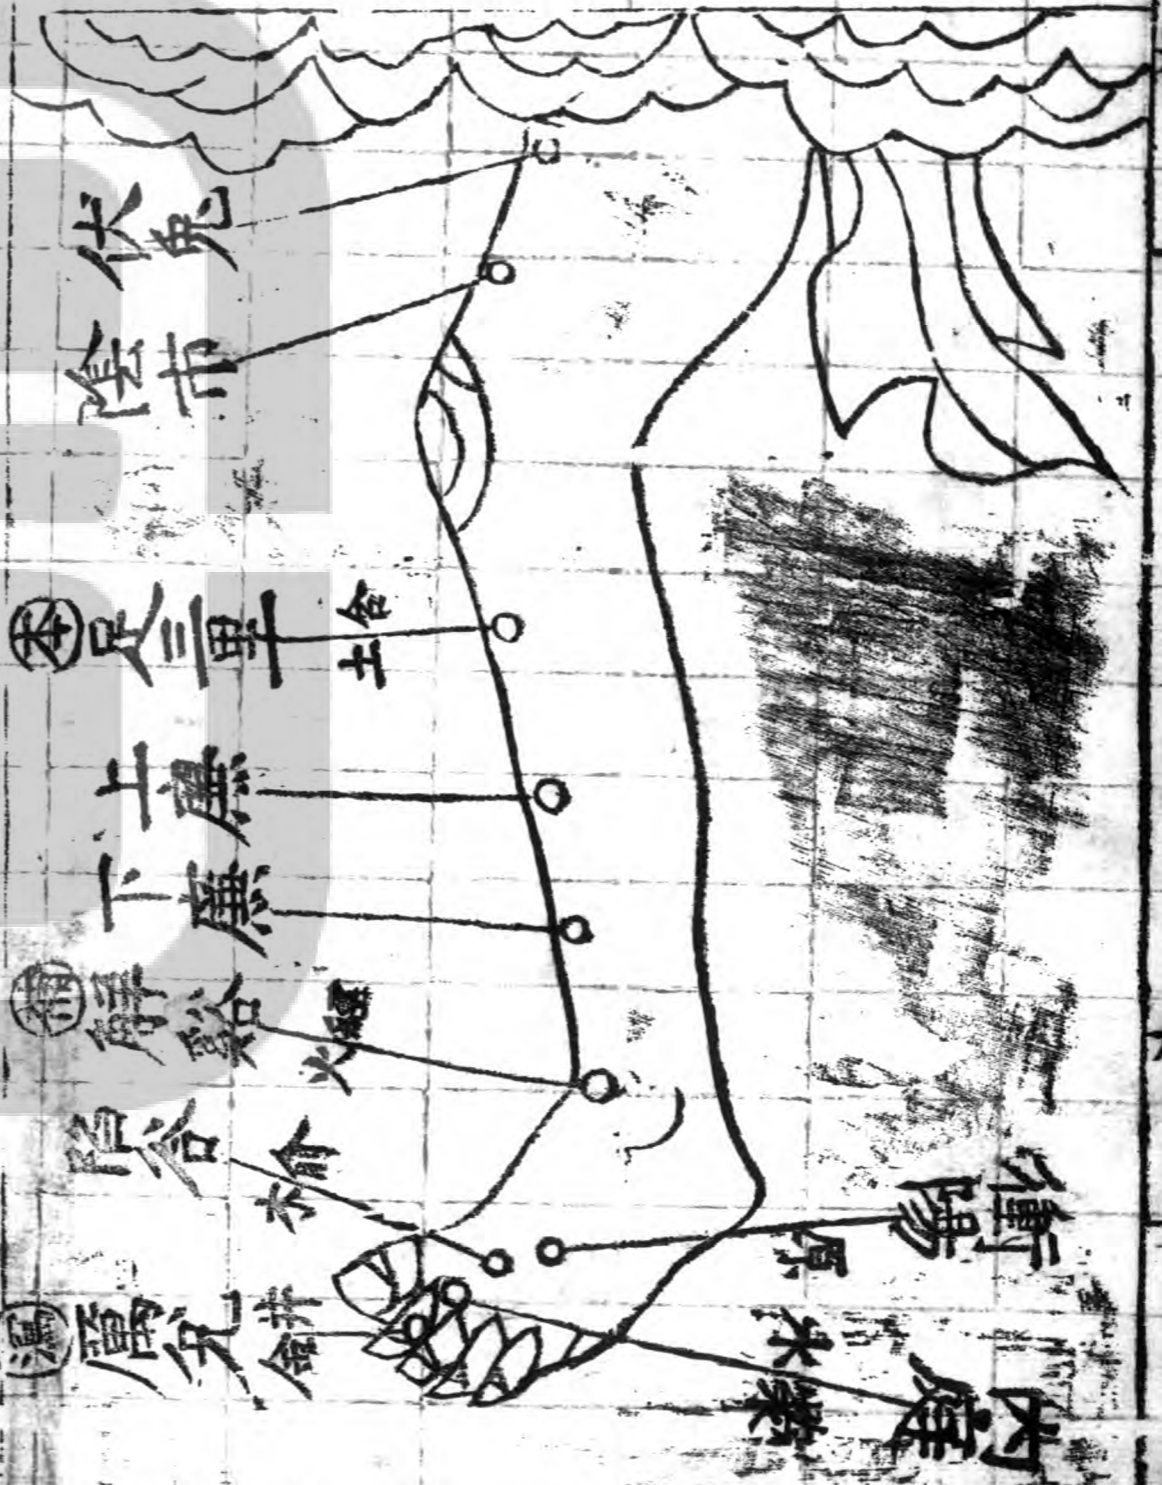 伏兔
陰市
本 足三里
土合
上廉
下廉
補 解谿
火經
陷谷
木俞
瀉 厲兌
金井
衝陽
原
內庭
水滎